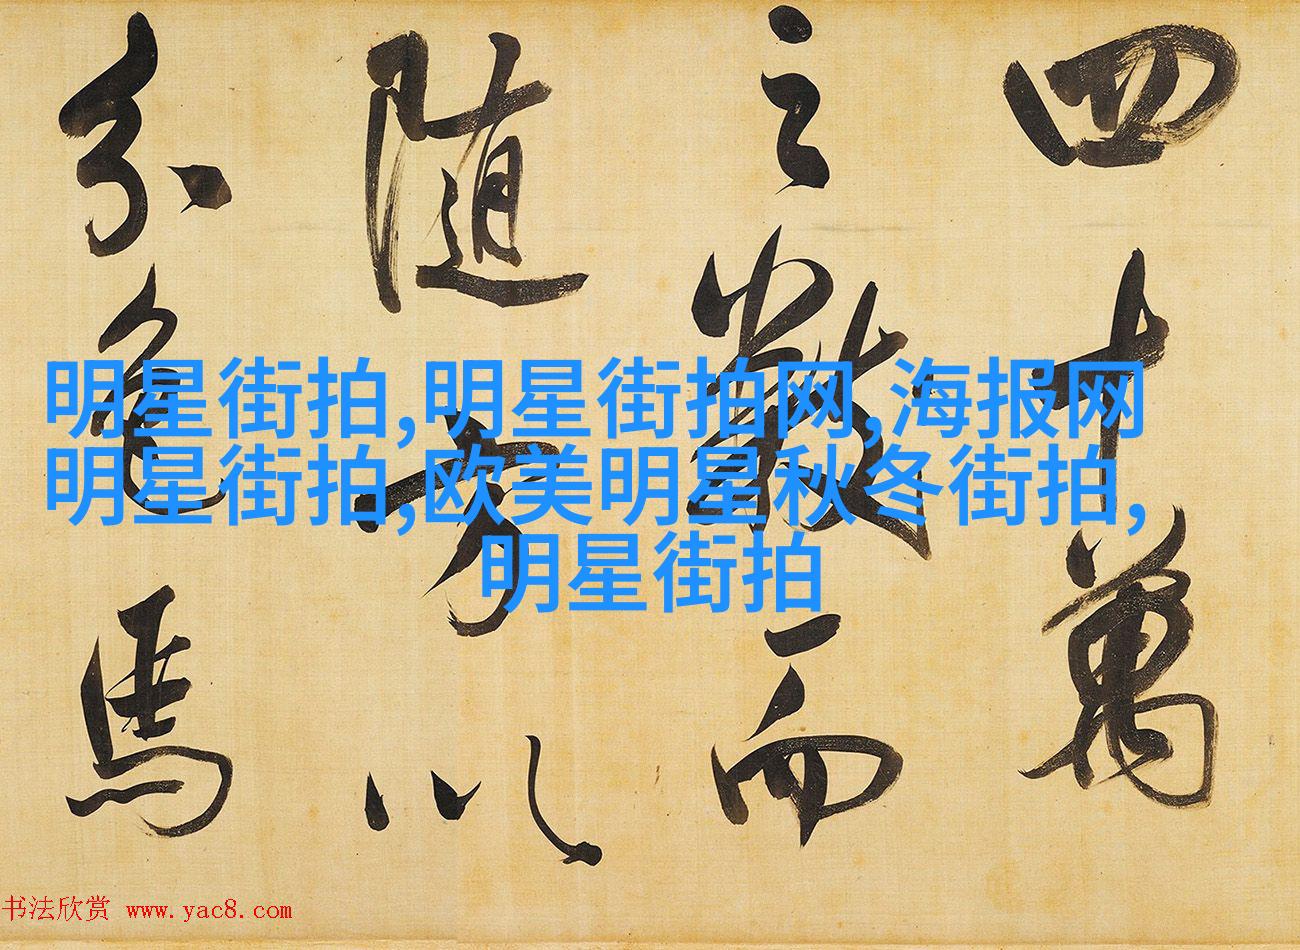 四十萬
之數而
隨方以
分色馬
明星街拍,明星街拍网,海报网
明星街拍,欧美明星秋冬街拍,
明星街拍
书法欣赏 www.yac8.com